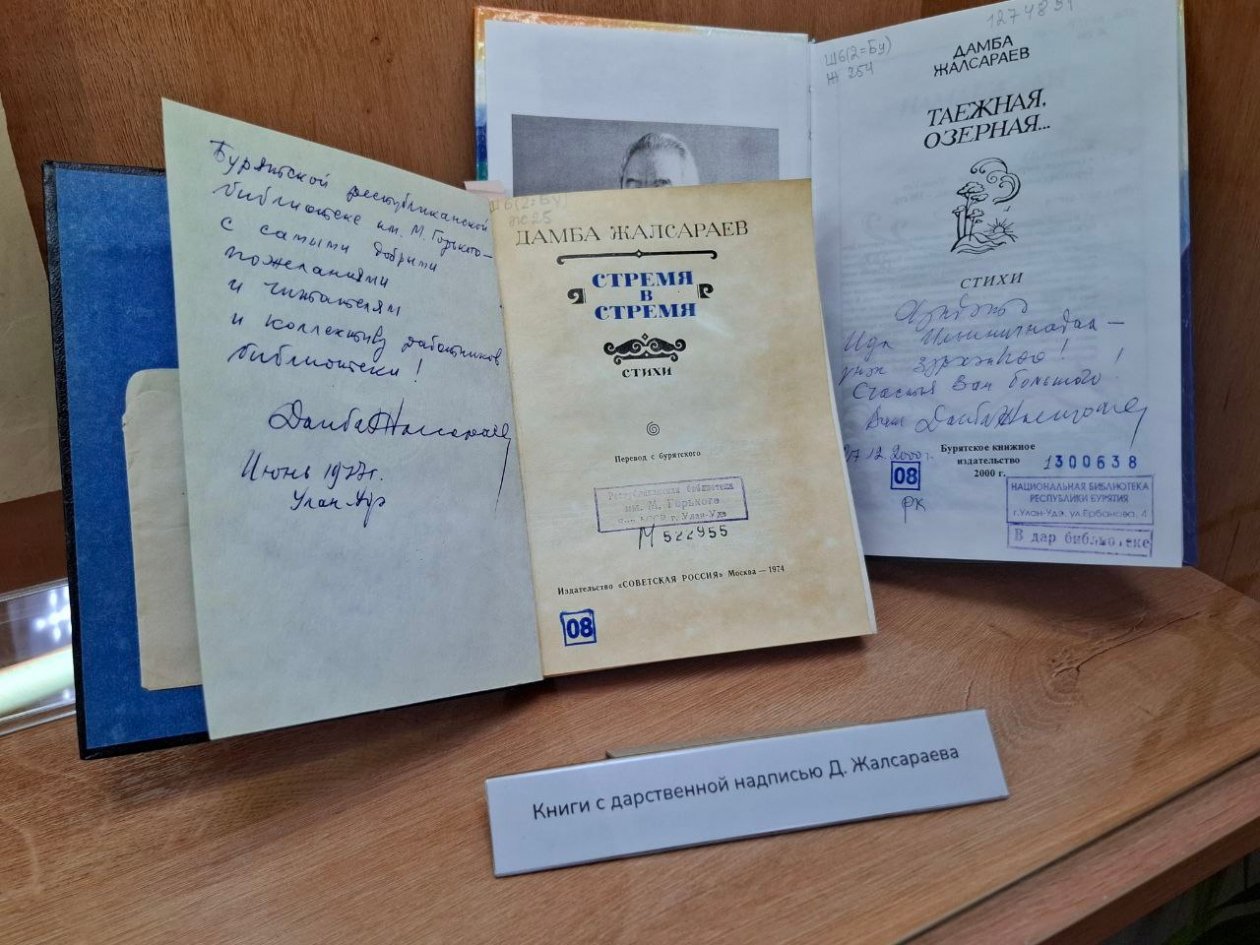 Бурятской республиканской
библиотеке им. М. Горького –
с самыми добрыми
пожеланиями
и читателям
и коллективу работников
библиотеки!
Дамба Жалсараев
Июнь 1977г.
Улан-Удэ
Ш6(2=Бу)
Ж25
ДАМБА ЖАЛСАРАЕВ
СТРЕМЯ
В
СТРЕМЯ
СТИХИ
Перевод с бурятского
Республиканская библиотека
им. М. Горького
г. Улан-Удэ
М 522955
Издательство «СОВЕТСКАЯ РОССИЯ» Москва — 1974
08
1274831
Ш6(2=Бу)
Ж 254
ДАМБА
ЖАЛСАРАЕВ
ТАЕЖНАЯ,
ОЗЕРНАЯ...
СТИХИ
Ида
зүрхэнһөө!
Счастья Вам большого!
Ваш Дамба Жалсараев
27.12.2000 г.
Бурятское книжное
издательство
2000 г.
1300638
08
РК
НАЦИОНАЛЬНАЯ БИБЛИОТЕКА
РЕСПУБЛИКИ БУРЯТИЯ
г.Улан-Удэ, ул.Ербанова, 4
В дар библиотеке
Книги с дарственной надписью Д. Жалсараева